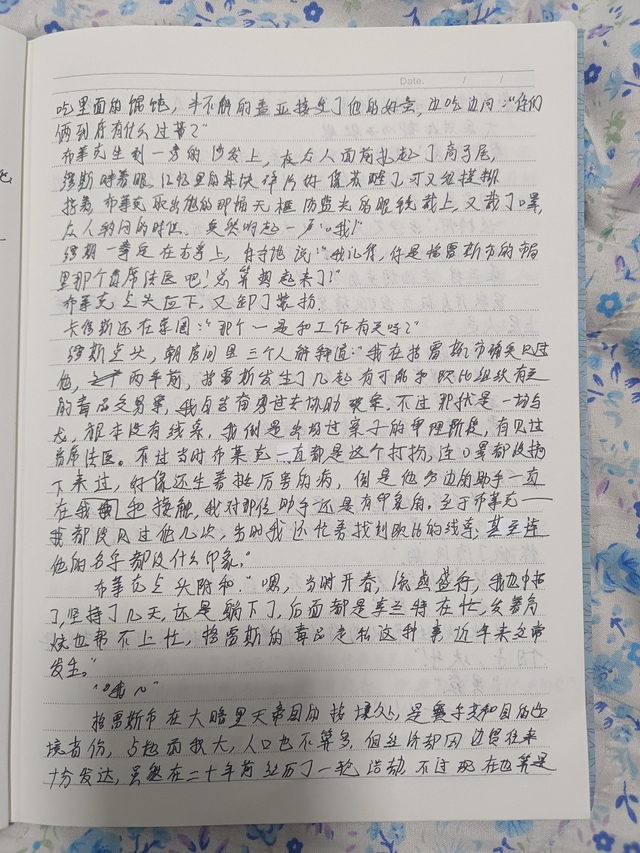 Date. / /
吃里面的馄饨，半不解的盖亚接受了他的好意，边吃边问：“你们
俩到底有什么过节？”
布莱克坐到一旁的沙发上，在众人面前扎起了高马尾，
缪斯眨着眼，记忆里的某块碎片好像苏醒了，可又很模糊
接着，布莱克取出他的那幅无框防蓝光的眼镜戴上，又戴了口罩，
众人纳闷的时候，突然响起一声“哦！”
缪斯一拳定在右掌上，自豪地说：“我记得，你是格雷斯市的
里那个首席法医吧！总算想起来了！”
布莱克点头应下，又卸了装扮。
卡修斯还在集团：“那个一是和工作有关吗？”
缪斯点头，朝房间里三个人解释道：“我在格雷斯市确实见过
他，两年前，格雷斯发生了几起有可能和欧比组织有关
的毒品交易案，我自告奋勇过去协助破案。不过那就是一场乌
龙，根本没有线索，我倒是出场过案子的审理阶段，有见过
首席法医。不过当时布莱克一直都是这个打扮，连口罩都没摘
下来过，好像还生着挺厉害的病，倒是他旁边的助手一直
在和我接触，我对那位助手还是有印象的。至于布莱克——
我都没见过他几次，当时我还忙着找到欧比的线索，甚至连
他的名字都没什么印象。”
布莱克点头附和，“嗯，当时开春，流感盛行，我也中招
了，坚持了几天，还是躺下了，后面都是莱兰特在忙，发着高
烧也帮不上忙，格雷斯的毒品走私这种事近年来也常
发生。”
“哦～”
格雷斯市在大暗黑天帝国的接壤处，是赛尔共和国的边
境省份，占地面积大，人口也不算多，但经济却因边贸往来
十分发达，虽然在二十年前经历了一轮动，不过现在也算是